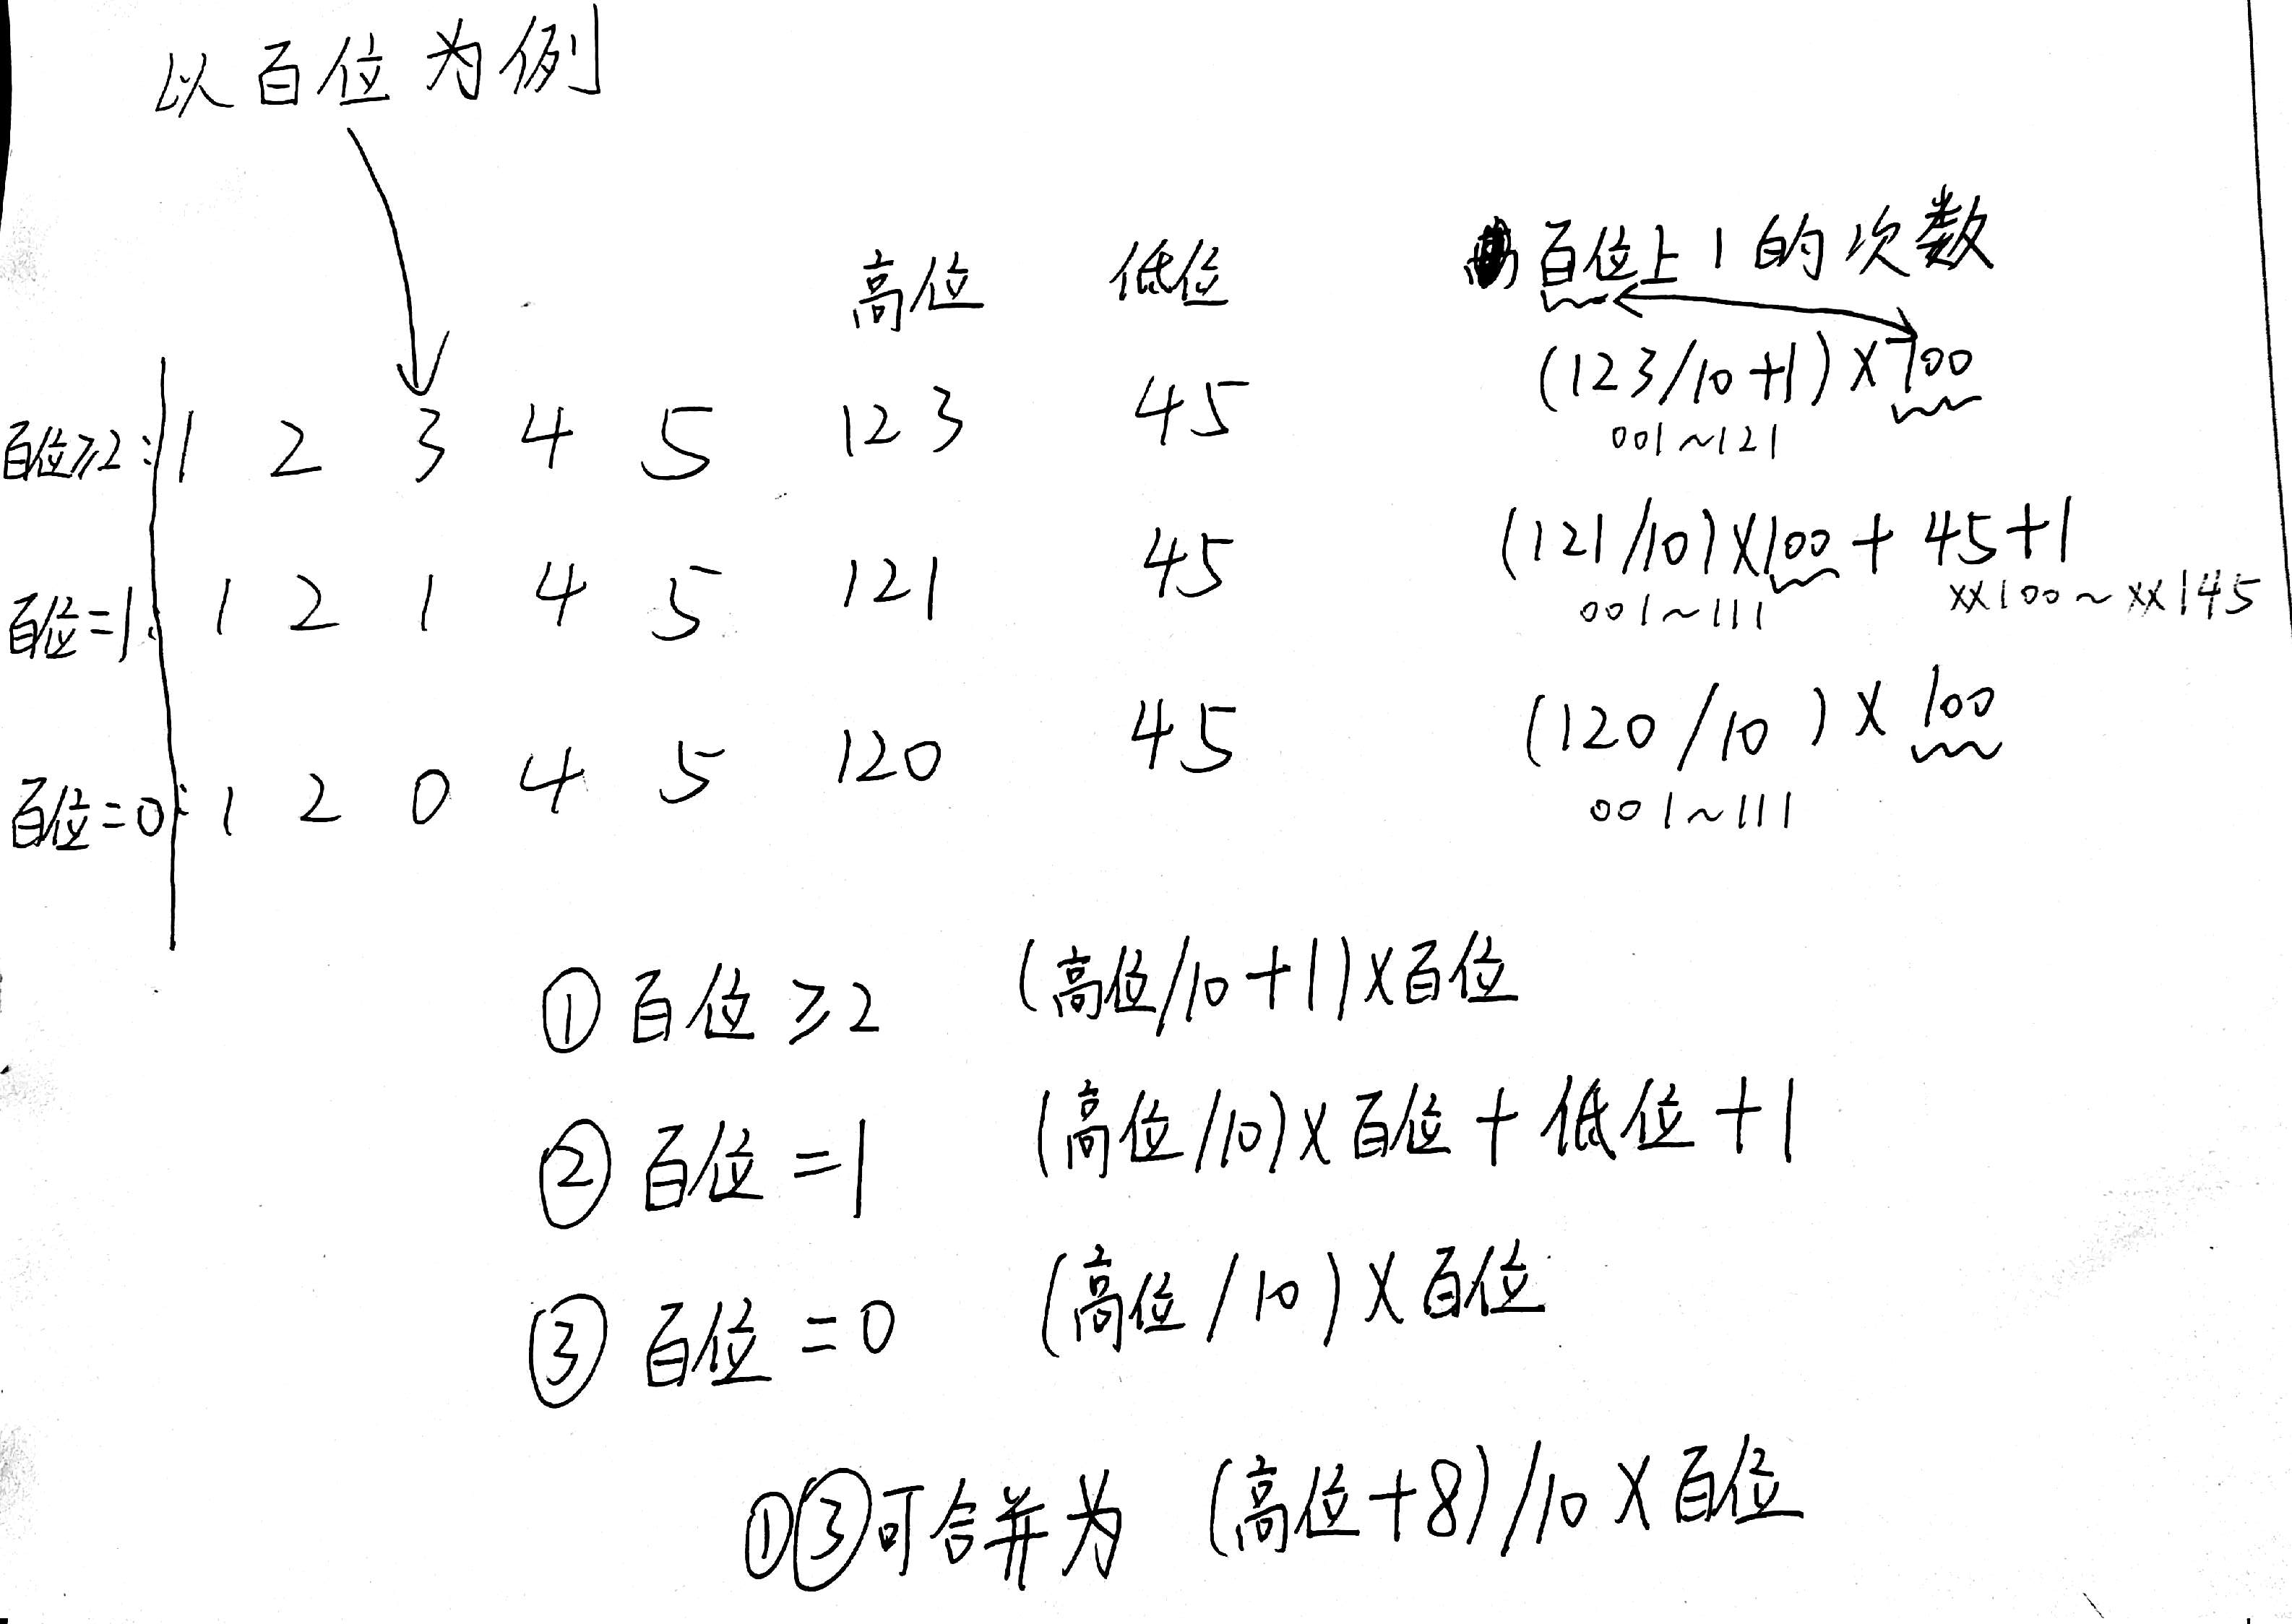 以百位为例
高位 低位 百位上1的次数
百位≥2: 1 2 3 4 5 123 45 (123/10+1)×100
001~121
百位=1: 1 2 1 4 5 121 45 (121/10)×100+45+1
001~111 xx100~xx145
百位=0: 1 2 0 4 5 120 45 (120/10)×100
001~111
①百位≥2 (高位/10+1)×百位
②百位=1 (高位/10)×百位+低位+1
③百位=0 (高位/10)×百位
①③可合并为 (高位+8)/10×百位